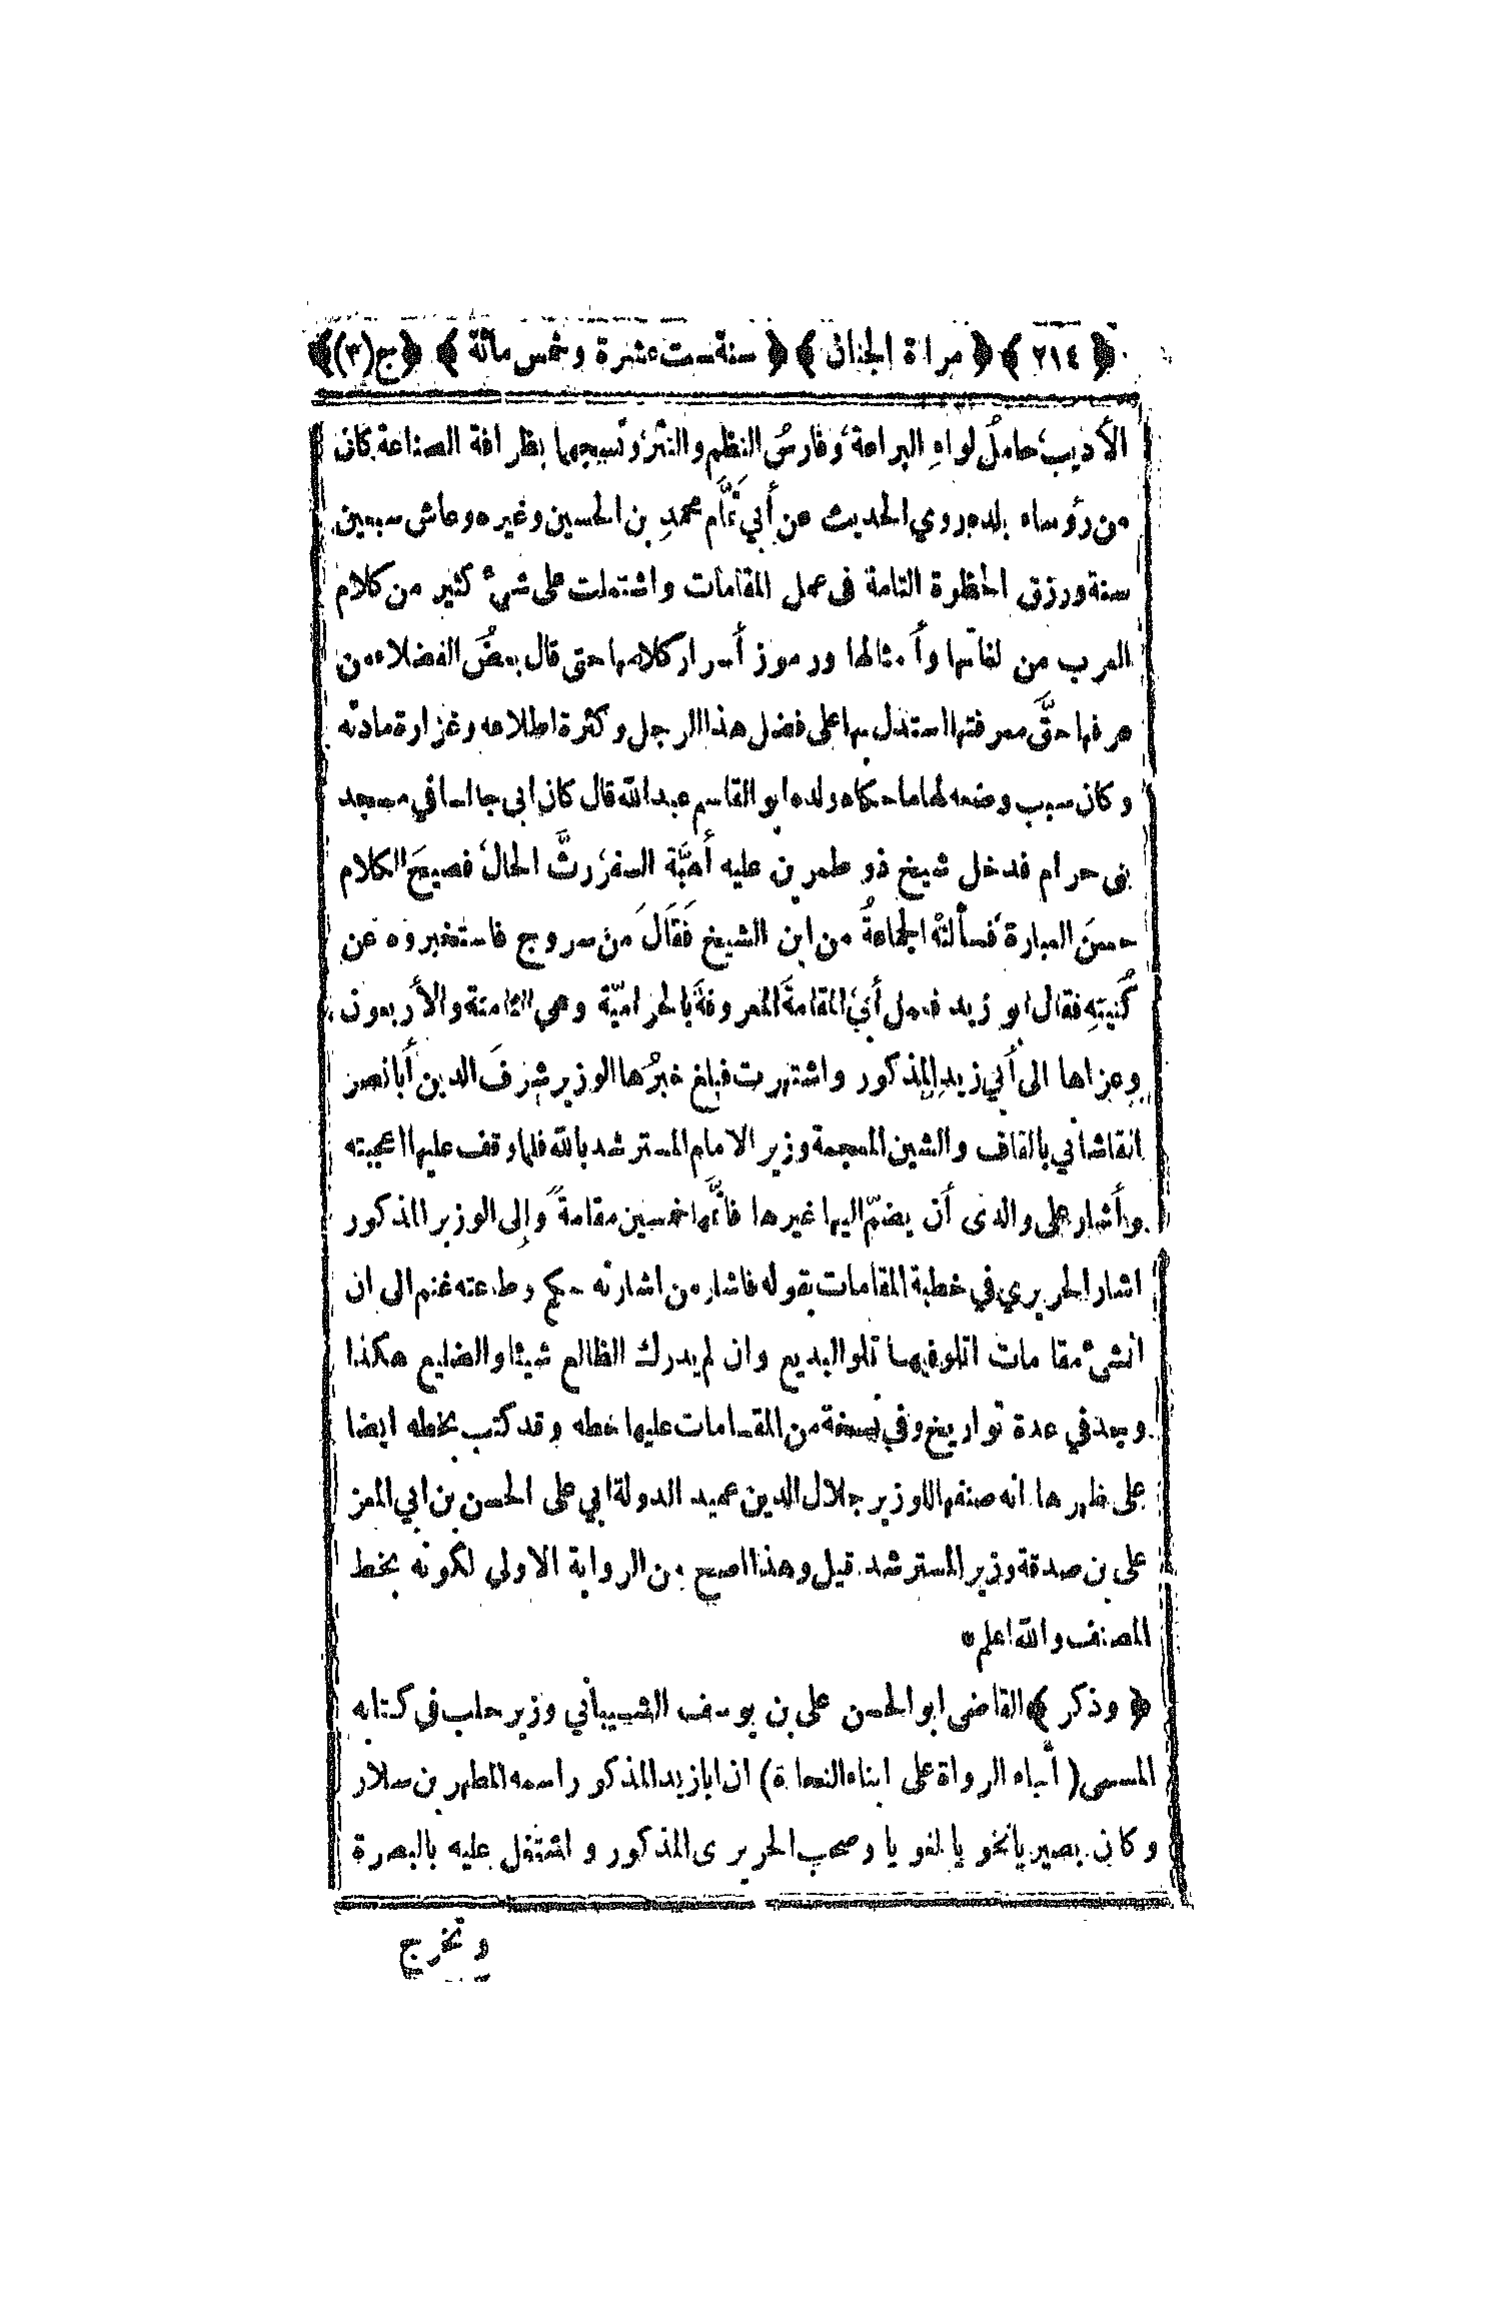 ﴿ ٢١٤ ﴾ ﴿ مراة الجنان ﴾ ﴿ سنة ست عشرة وخمس مائة ﴾ ﴿ ج (٣) ﴾
الأديب، حاملُ لواءِ البراعة، وفارسُ النظم والنثر، ونسيجها بظرافة الصناعة كان
من رؤساء بلده روي الحديث عن أبي تمَّام محمدِ بن الحسين وغيره وعاش سبعين
سنة ورزق الحظوة التامة فى عمل المقامات واشتملت على شيء كثير من كلام
العرب من لغاتها وأمثالها ورموز أسرار كلامها حتى قال بعضُ الفضلاء من
عرفها حقَّ معرفتها استدل بها على فضل هذا الرجل وكثرة اطلاعه وغزارة مادته
وكان سبب وضعه لها ما حكاه ولده ابو القاسم عبد الله قال كان ابى جالسا في مسجد
بنى حرام فدخل شيخ ذو طمرين عليه أهبَّة السفر، رثَّ الحال، فصيحَ الكلام
حسنَ العبارة، فسألته الجماعةُ من اين الشيخ فَقَالَ منَ سروج فاستخبروه عن
كُنيتِه فقال ابو زيد فعمل أبي المقامةَ المعروفةَ بالحراميّة وهي الثامنة والأربعون
وعزاها الى أبي زيدٍ المذكور واشتهرت فبلغ خبرُها الوزير شرفَ الدين أبا نصر
انقاشاني بالقاف والشين المعجمة وزير الامام المسترشد بالله فلما وقف عليها اعجبته
وأشار على والدى أن يضمّ اليها غيرها فاتَمَّها خمسين مقامةً وإلى الوزير المذكور
اشار الحريري في خطبة المقامات بقوله فاشار من اشارته حكم وطاعته غنم الى ان
انشئ مقامات اتلو فيها تلو البديع وان لم يدرك الظالع شيئا والضليع هكذا
وجد في عدة تواريخ وفي نسخة من المقامات عليها خطه وقد كتب بخطه ايضا
على ظهرها انه صنفها للوزير جلال الدين عميد الدولة ابي على الحسن بن ابي المعز
على بن صدقة وزير المسترشد قيل وهذا اصح من الرواية الاولي لكونه بخط
المصنف والله اعلم *
﴿ وذكر ﴾ القاضى ابو الحسن على بن يوسف الشيباني وزير حلب فى كتابه
المسمى ( أنباء الرواة على ابناء النحاة ) ان ابا زيد المذكور اسمه المطهر بن سلار
وكان بصيريا نحويا لغويا وصحب الحريرى المذكور واشتغل عليه بالبصرة
وتخرج